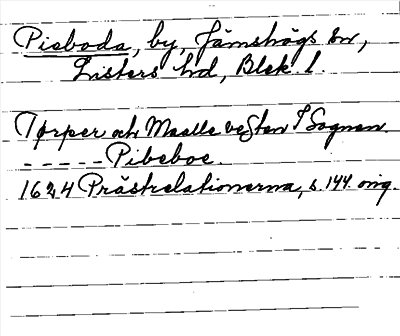 Pieboda, by, Jämshögs sn,
Listers hd, Blek. l.
Tørper och Maelle vesten I Sognen
- - - - - Pibeboe.
1624 Prästrelationerna, s. 144. orig.